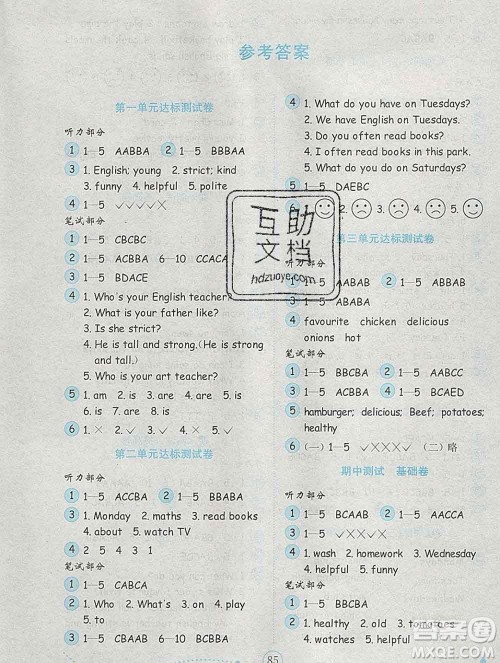 参考答案
第一单元达标测试卷
听力部分
1 1—5 AABBA 2 1—5 BBBAA
3 1. English; young 2. strict; kind
3. funny 4. helpful 5. polite
4 1—5 ✓✓✓✓×
笔试部分
1 1—5 CBCBC
2 1—5 ACABA 6—10 CCACA
3 1—5 BDACE
4 1. Who's your English teacher?
2. What is your father like?
3. Is she strict?
4. He is tall and strong.(He is strong
and tall.)
5. Who is your art teacher?
5 1. am 2. is 3. is 4. are 5. is
6. is 7. are 8. is
6 1. × 2. ✓ 3. ✓ 4. × 5. ✓
第二单元达标测试卷
听力部分
1 1—5 ACCBA 2 1—5 BBABA
3 1. Monday 2. maths 3. read books
4. about 5. watch TV
4 2 5 4 3 1
笔试部分
1 1—5 CABCA
2 1. Who 2. What's 3. on 4. play
5. to
3 1—5 CBAAB 6—10 BCBBC
4 1. What do you have on Tuesdays?
2. We have English on Tuesdays.
3. Do you often read books?
4. I often read books in this park.
5. What do you do on Saturdays?
5 1—5 DAEBC
6 1. 2. 3. 4. 5.
第三单元达标测试卷
听力部分
1 1—5 ABABA
3 1—5 ABBAB
4 favourite chicken delicious
onions hot
笔试部分
1 1—5 ABBBA 2 1—5 AABCC
3 1—5 ACBBA 4 1—5 BCAED
5 hamburger; delicious; Beef; potatoes;
healthy
6 (一) 1—5 ✓×✓×✓ (二) 略
期中测试 基础卷
听力部分
1 1—5 BCAAB 2 1—5 AACCA
3 1—5 ✓×✓××
4 1. wash 2. homework 3. Wednesday
4. helpful 5. funny
笔试部分
1 1—5 BCBBB
2 1. healthy 2. old 3. tomatoes
4. watches 5. helpful
85
互助
文档
hdzuoye.com
作业帮
MXQE.COM